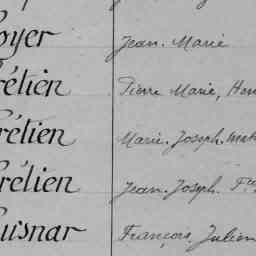 oyer Jean. Marie
rétien Pierre Marie, Hen
rétien Marie. Joseph.
rélien Jean. Joseph. F
uisnar François, Julien